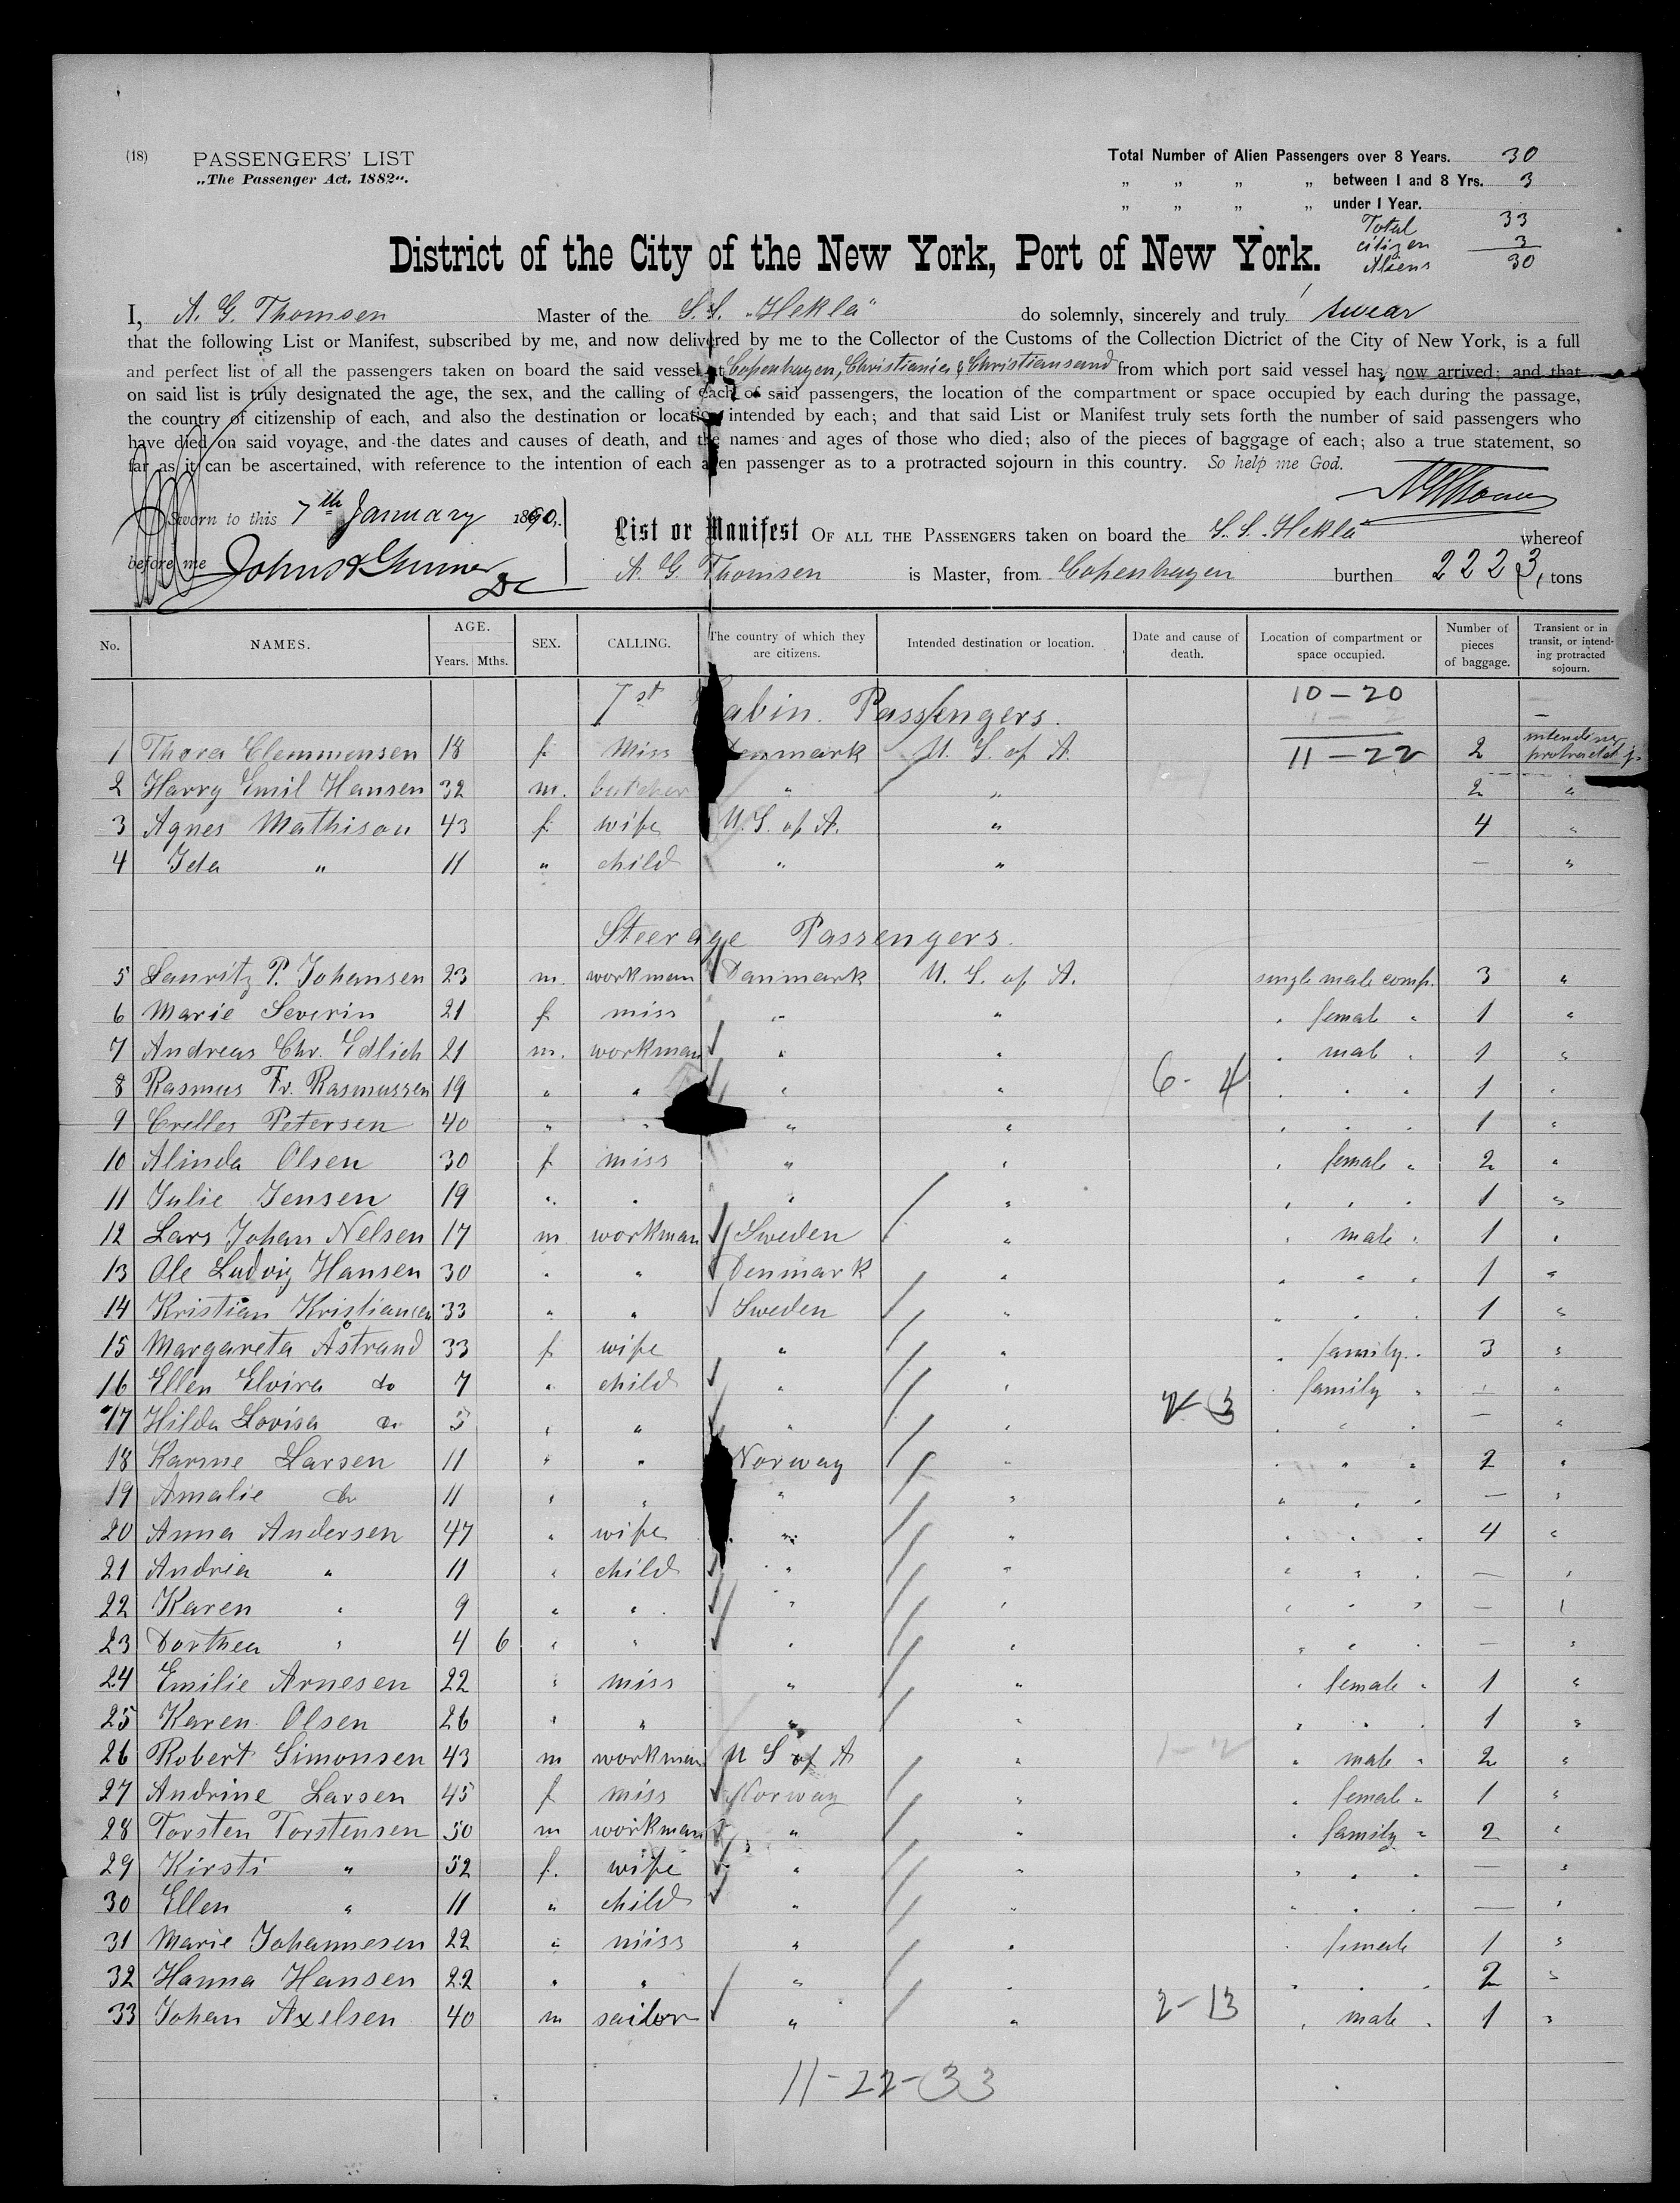 (18) PASSENGERS' LIST
„The Passenger Act, 1882“.
Total Number of Alien Passengers over 8 Years. 30
„ „ „ „ between 1 and 8 Yrs. 3
„ „ „ „ under 1 Year.
Total 33
citizen 3
Aliens 30
District of the City of the New York, Port of New York.
I, A. G. Thomsen Master of the S.S. „Hekla“ do solemnly, sincerely and truly swear
that the following List or Manifest, subscribed by me, and now delivered by me to the Collector of the Customs of the Collection Dictrict of the City of New York, is a full
and perfect list of all the passengers taken on board the said vessel at Copenhagen, Christiania & Christiansand from which port said vessel has now arrived; and that
on said list is truly designated the age, the sex, and the calling of each of said passengers, the location of the compartment or space occupied by each during the passage,
the country of citizenship of each, and also the destination or location intended by each; and that said List or Manifest truly sets forth the number of said passengers who
have died on said voyage, and the dates and causes of death, and the names and ages of those who died; also of the pieces of baggage of each; also a true statement, so
far as it can be ascertained, with reference to the intention of each alien passenger as to a protracted sojourn in this country. So help me God.
Sworn to this 7th January 1890.
before me
List or Manifest OF ALL THE PASSENGERS taken on board the S.S. „Hekla“ whereof
A. G. Thomsen is Master, from Copenhagen burthen 2223, tons
No. NAMES. AGE. Years. Mths. SEX. CALLING. The country of which they are citizens. Intended destination or location. Date and cause of death. Location of compartment or space occupied. Number of pieces of baggage. Transient or in transit, or intending protracted sojourn.
1st Cabin Passengers. 10 – 20
1 Thora Clemmensen 18 f. Miss Denmark U. S. of A. 11 – 22 2 intending protracted j.
2 Harry Emil Hansen 32 m. butcher " " 2 "
3 Agnes Mathison 43 f. wife U.S. of A. " 4 "
4 Ida " 11 " child " " — "
Steerage Passengers.
5 Lauritz P. Johansen 23 m. workman Danmark U. S. of A. single male comp. 3 "
6 Marie Severin 21 f. miss " " " femal " 1 "
7 Andreas Chr. Edlich 21 m. workman " " " mal " 1 "
8 Rasmus Fr. Rasmussen 19 " " " " 6 - 4 " " " 1 "
9 Petersen 40 " " " " " " " 1 "
10 Alinda Olsen 30 f. miss " " " female " 2 "
11 Julie Jensen 19 " " " " " " " 1 "
12 Lars Johan Nelsen 17 m workman Sweden " " male " 1 "
13 Ole Ludvig Hansen 30 " " Denmark " " " " 1 "
14 Kristian Kristiansen 33 " " Sweden " " " " 1 "
15 Margareta Åstrand 33 f. wife " " " family " 3 "
16 Ellen Elvira do 7 " child " " " family " — "
17 Hilda Lovisa do 5 " " " " " " " — "
18 Karine Larsen 11 " " Norway " " " " 2 "
19 Amalie do 11 " " " " " " " — "
20 Anna Andersen 47 " wife " " " " " 4 "
21 Andrea " 11 " child " " " " " — "
22 Karen " 9 " " " " " " " — "
23 Dorthea " 4 6 " " " " " " " — "
24 Emilie Arnesen 22 " miss " " " female " 1 "
25 Karen Olsen 26 " " " " " " " 1 "
26 Robert Simonsen 43 m workman U S of A " 1 - 2 " male " 2 "
27 Andrine Larsen 45 f miss Norway " " female " 1 "
28 Torsten Torstensen 50 m workman " " " family " 2 "
29 Kirsti " 52 f. wife " " " " " — "
30 Ellen " 11 " child " " " " " — "
31 Marie Johannesen 22 " miss " " " female 1 "
32 Hanna Hansen 22 " " " " " " " 2 "
33 Johan Axelsen 40 m sailor " " 2 - 13 " male " 1 "
11 - 22 - 33